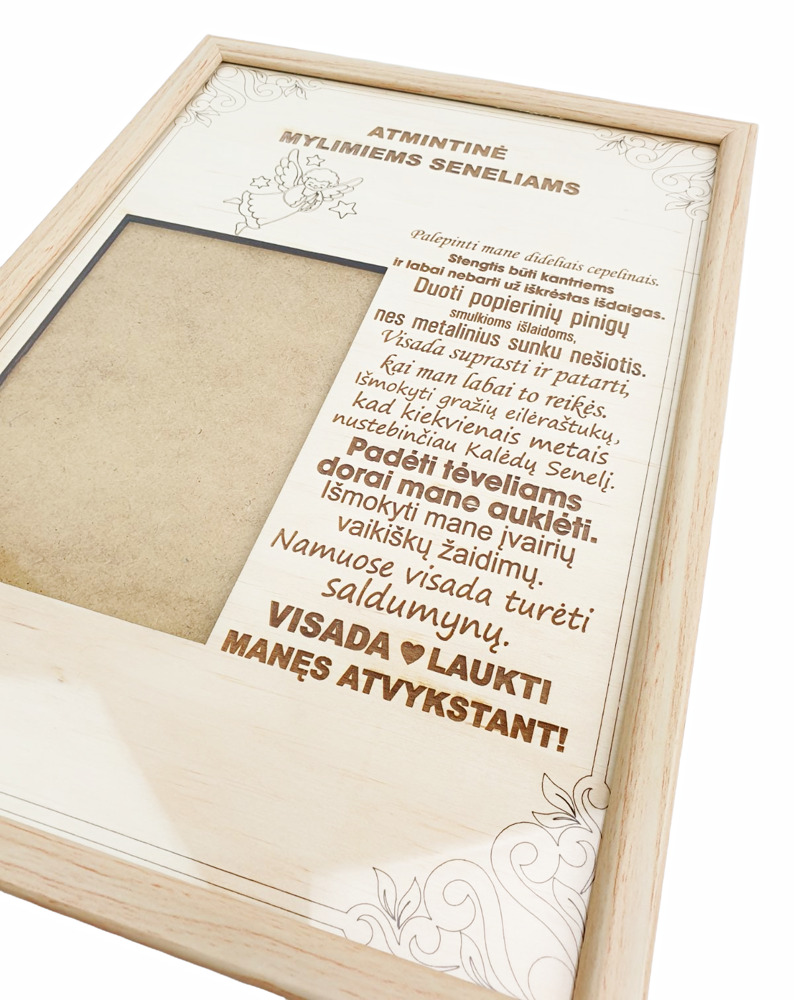 ATMINTINĖ
MYLIMIEMS SENELIAMS
Palepinti mane dideliais cepelinais.
Stengtis būti kantriems
ir labai nebarti už iškrėstas išdaigas.
Duoti popierinių pinigų
smulkioms išlaidoms,
nes metalinius sunku nešiotis.
Visada suprasti ir patarti,
kai man labai to reikės.
Išmokyti gražių eilėraštukų,
kad kiekvienais metais
nustebinčiau Kalėdų Senelį.
Padėti tėveliams
dorai mane auklėti.
Išmokyti mane įvairių
vaikiškų žaidimų.
Namuose visada turėti
saldumynų.
VISADA ♥ LAUKTI
MANĘS ATVYKSTANT!